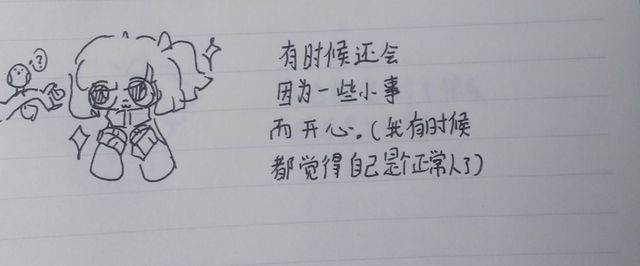 ?
有时候还会
因为一些小事
而开心.(我有时候
都觉得自己是个正常人了)